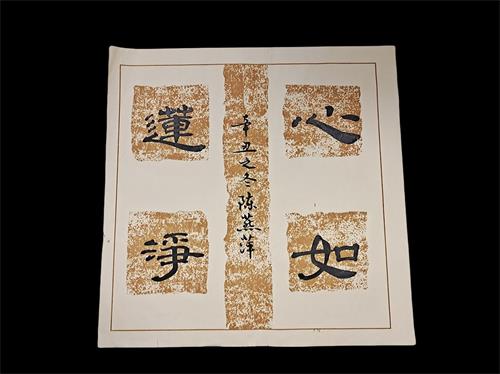 心如
辛丑之冬陈燕萍
蓮淨